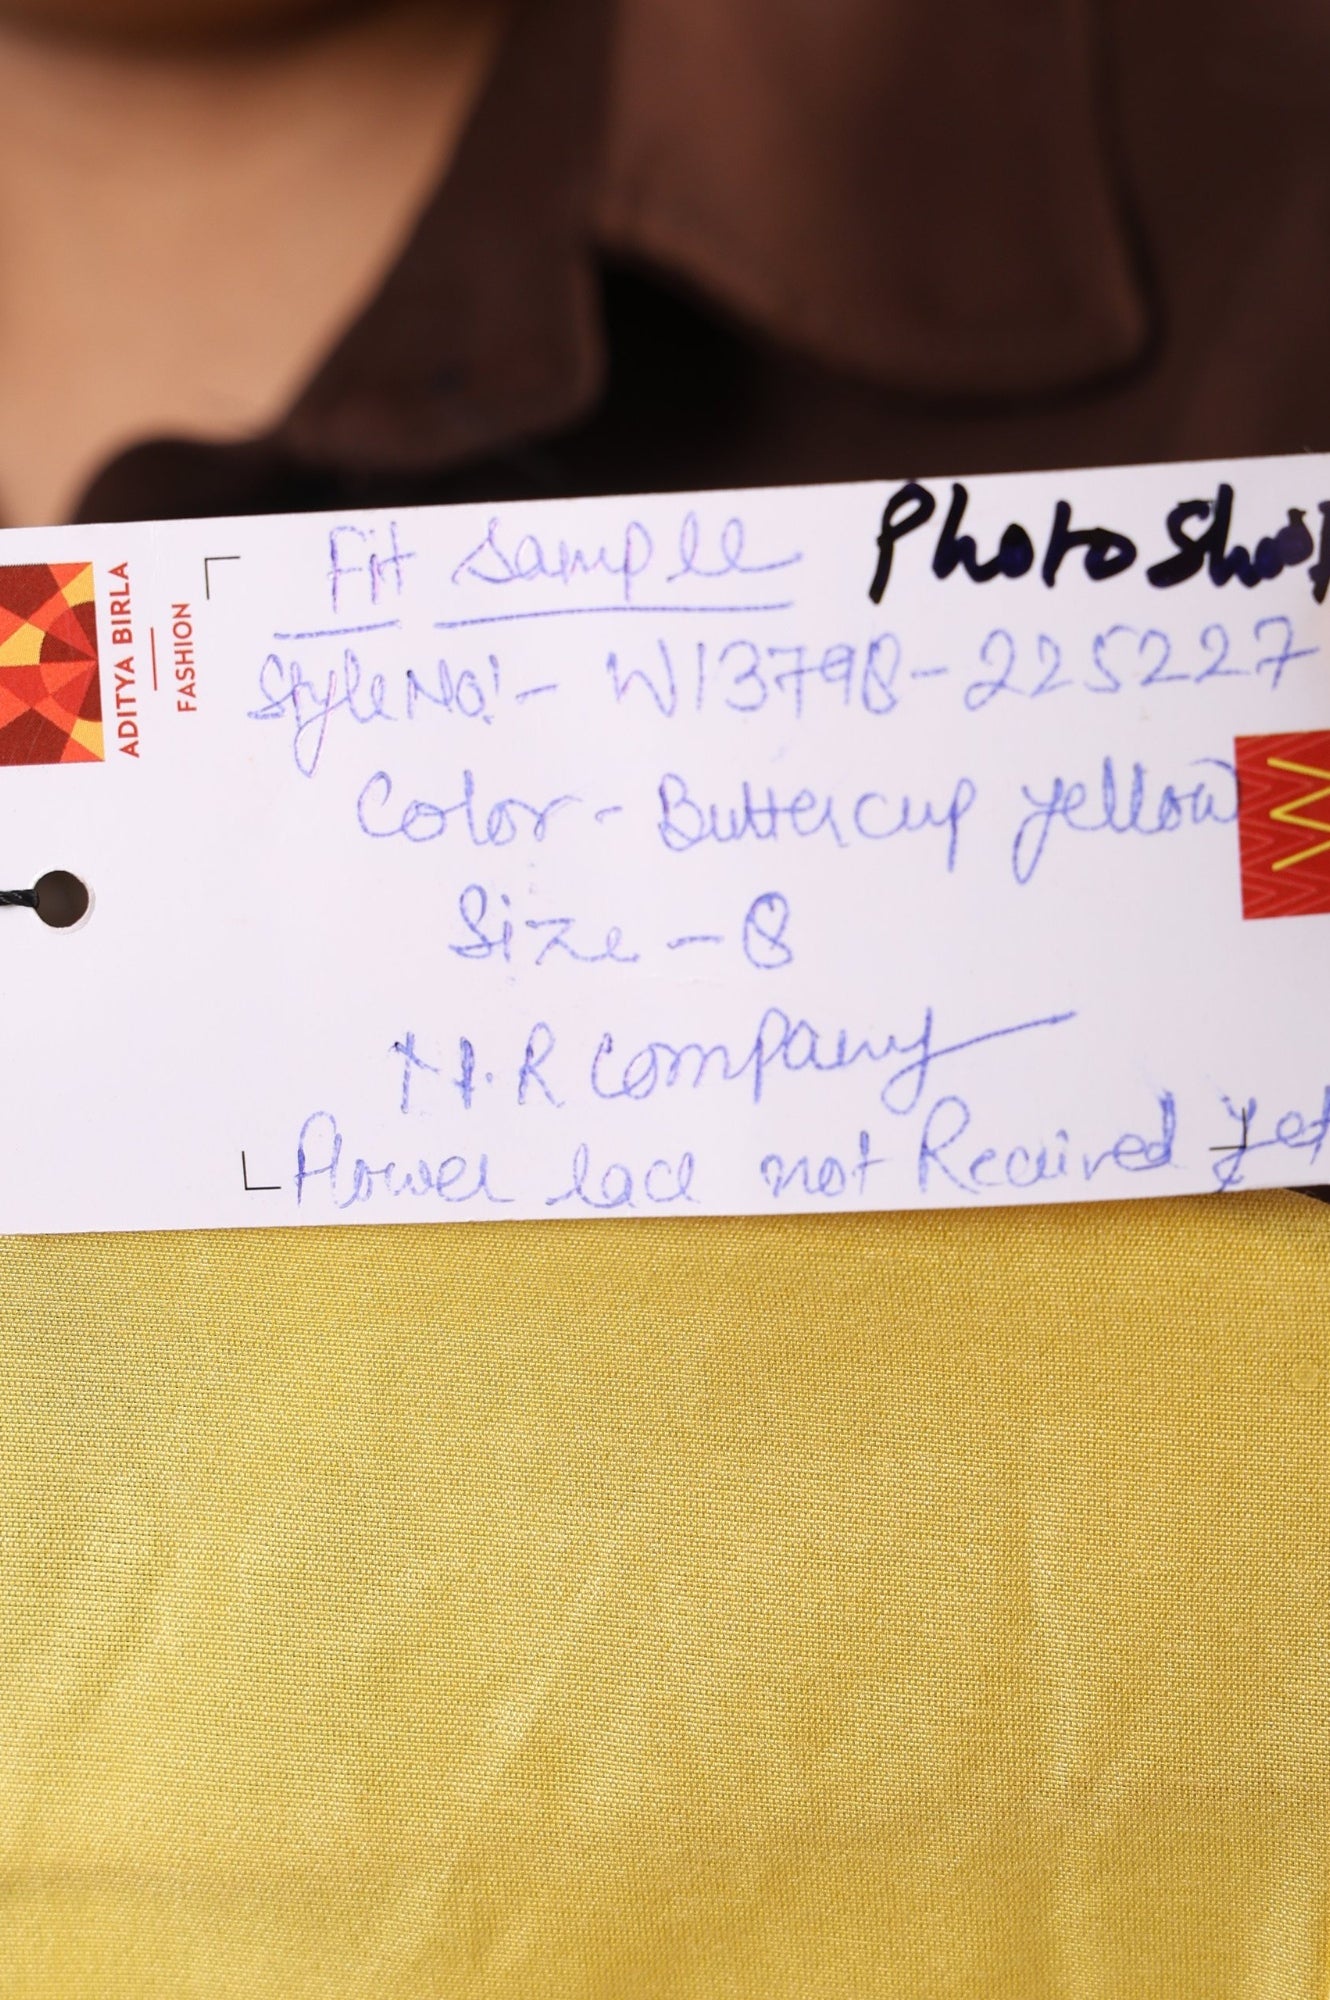 Fit Sample PhotoShoot
Style No:- W13798-225227
Color - Buttercup yellow
Size - 8
H.R Company
Flower lace not Received yet
ADITYA BIRLA
FASHION